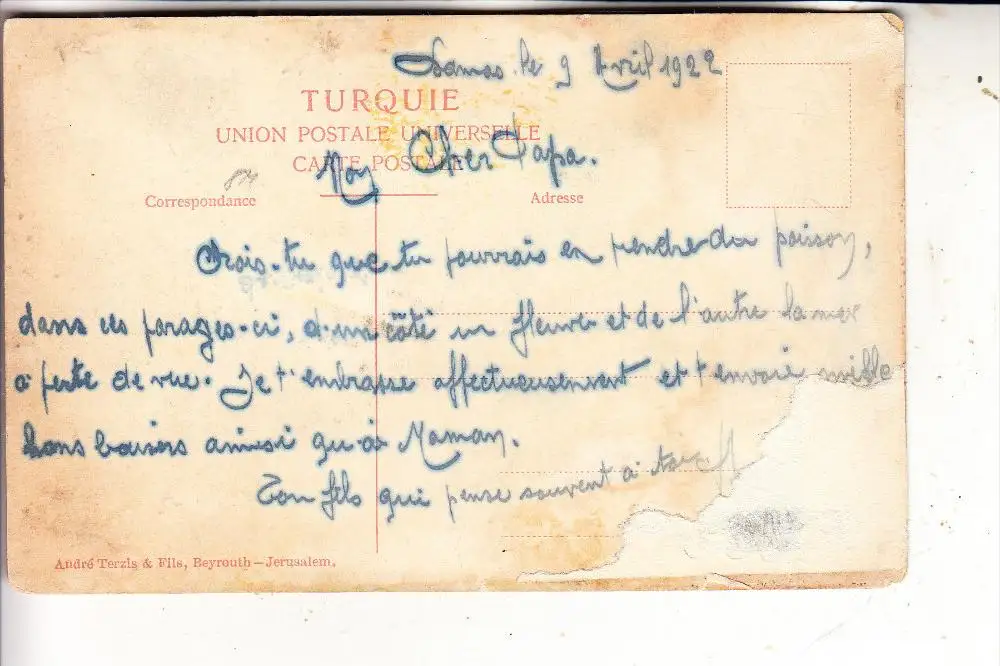 Damas le 9 Avril 1922
TURQUIE
UNION POSTALE UNIVERSELLE
CARTE POSTALE
Mon Cher Papa.
Correspondance
Adresse
Crois-tu que tu pourrais en prendre du poisson,
dans ces parages-ci, d'un côté un fleuve et de l'autre la mer
a perte de vue. Je t'embrasse affectueusement et t'envoie mille
bons baisers ainsi qu'à Maman.
Ton fils qui pense souvent à toi
André Terzis & Fils, Beyrouth—Jerusalem.